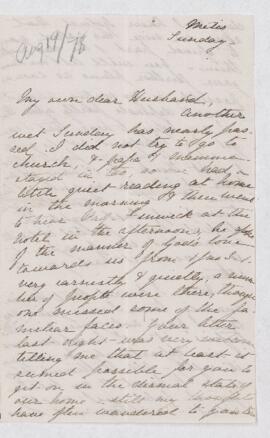 Metis
Sunday
Aug 19/78
My own dear Husband,
Another
wet Sunday has nearly pas-
sed. I did not try to go to
church, & papa & Mamma
stayed in too, so we had a
little quiet reading at home
in the morning & then went
to hear at the
hotel in the afternoon, he spoke
of the manner of God's love
towards us from
very earnestly & quietly, a num-
ber of people were there, though
one missed some of the fa-
miliar faces. Your letter
last night was very welcome
telling me that at least it
seemed possible for you to
get on in the dismal state of
our home - still my thoughts
have often wandered to you